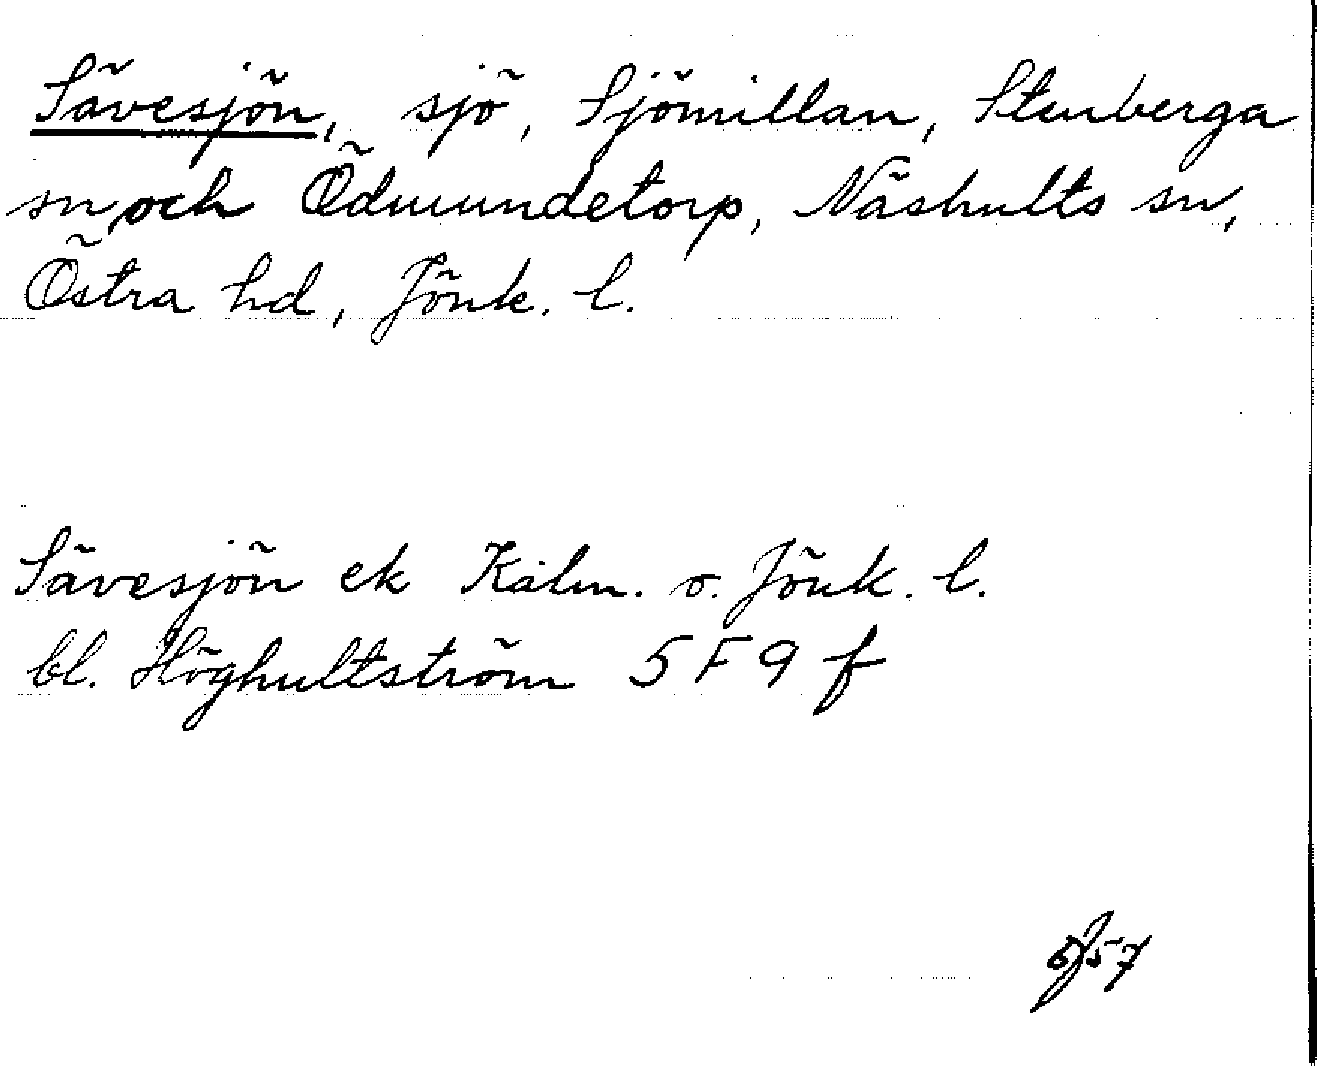 Sävesjön, sjö, Sjömillan, Stenberga
sn och Ödmundetorp, Näshults sn,
Östra hd, Jönk. l.
Sävesjön ek Kalm. o. Jönk. l.
bl. Höghultström 5F9f